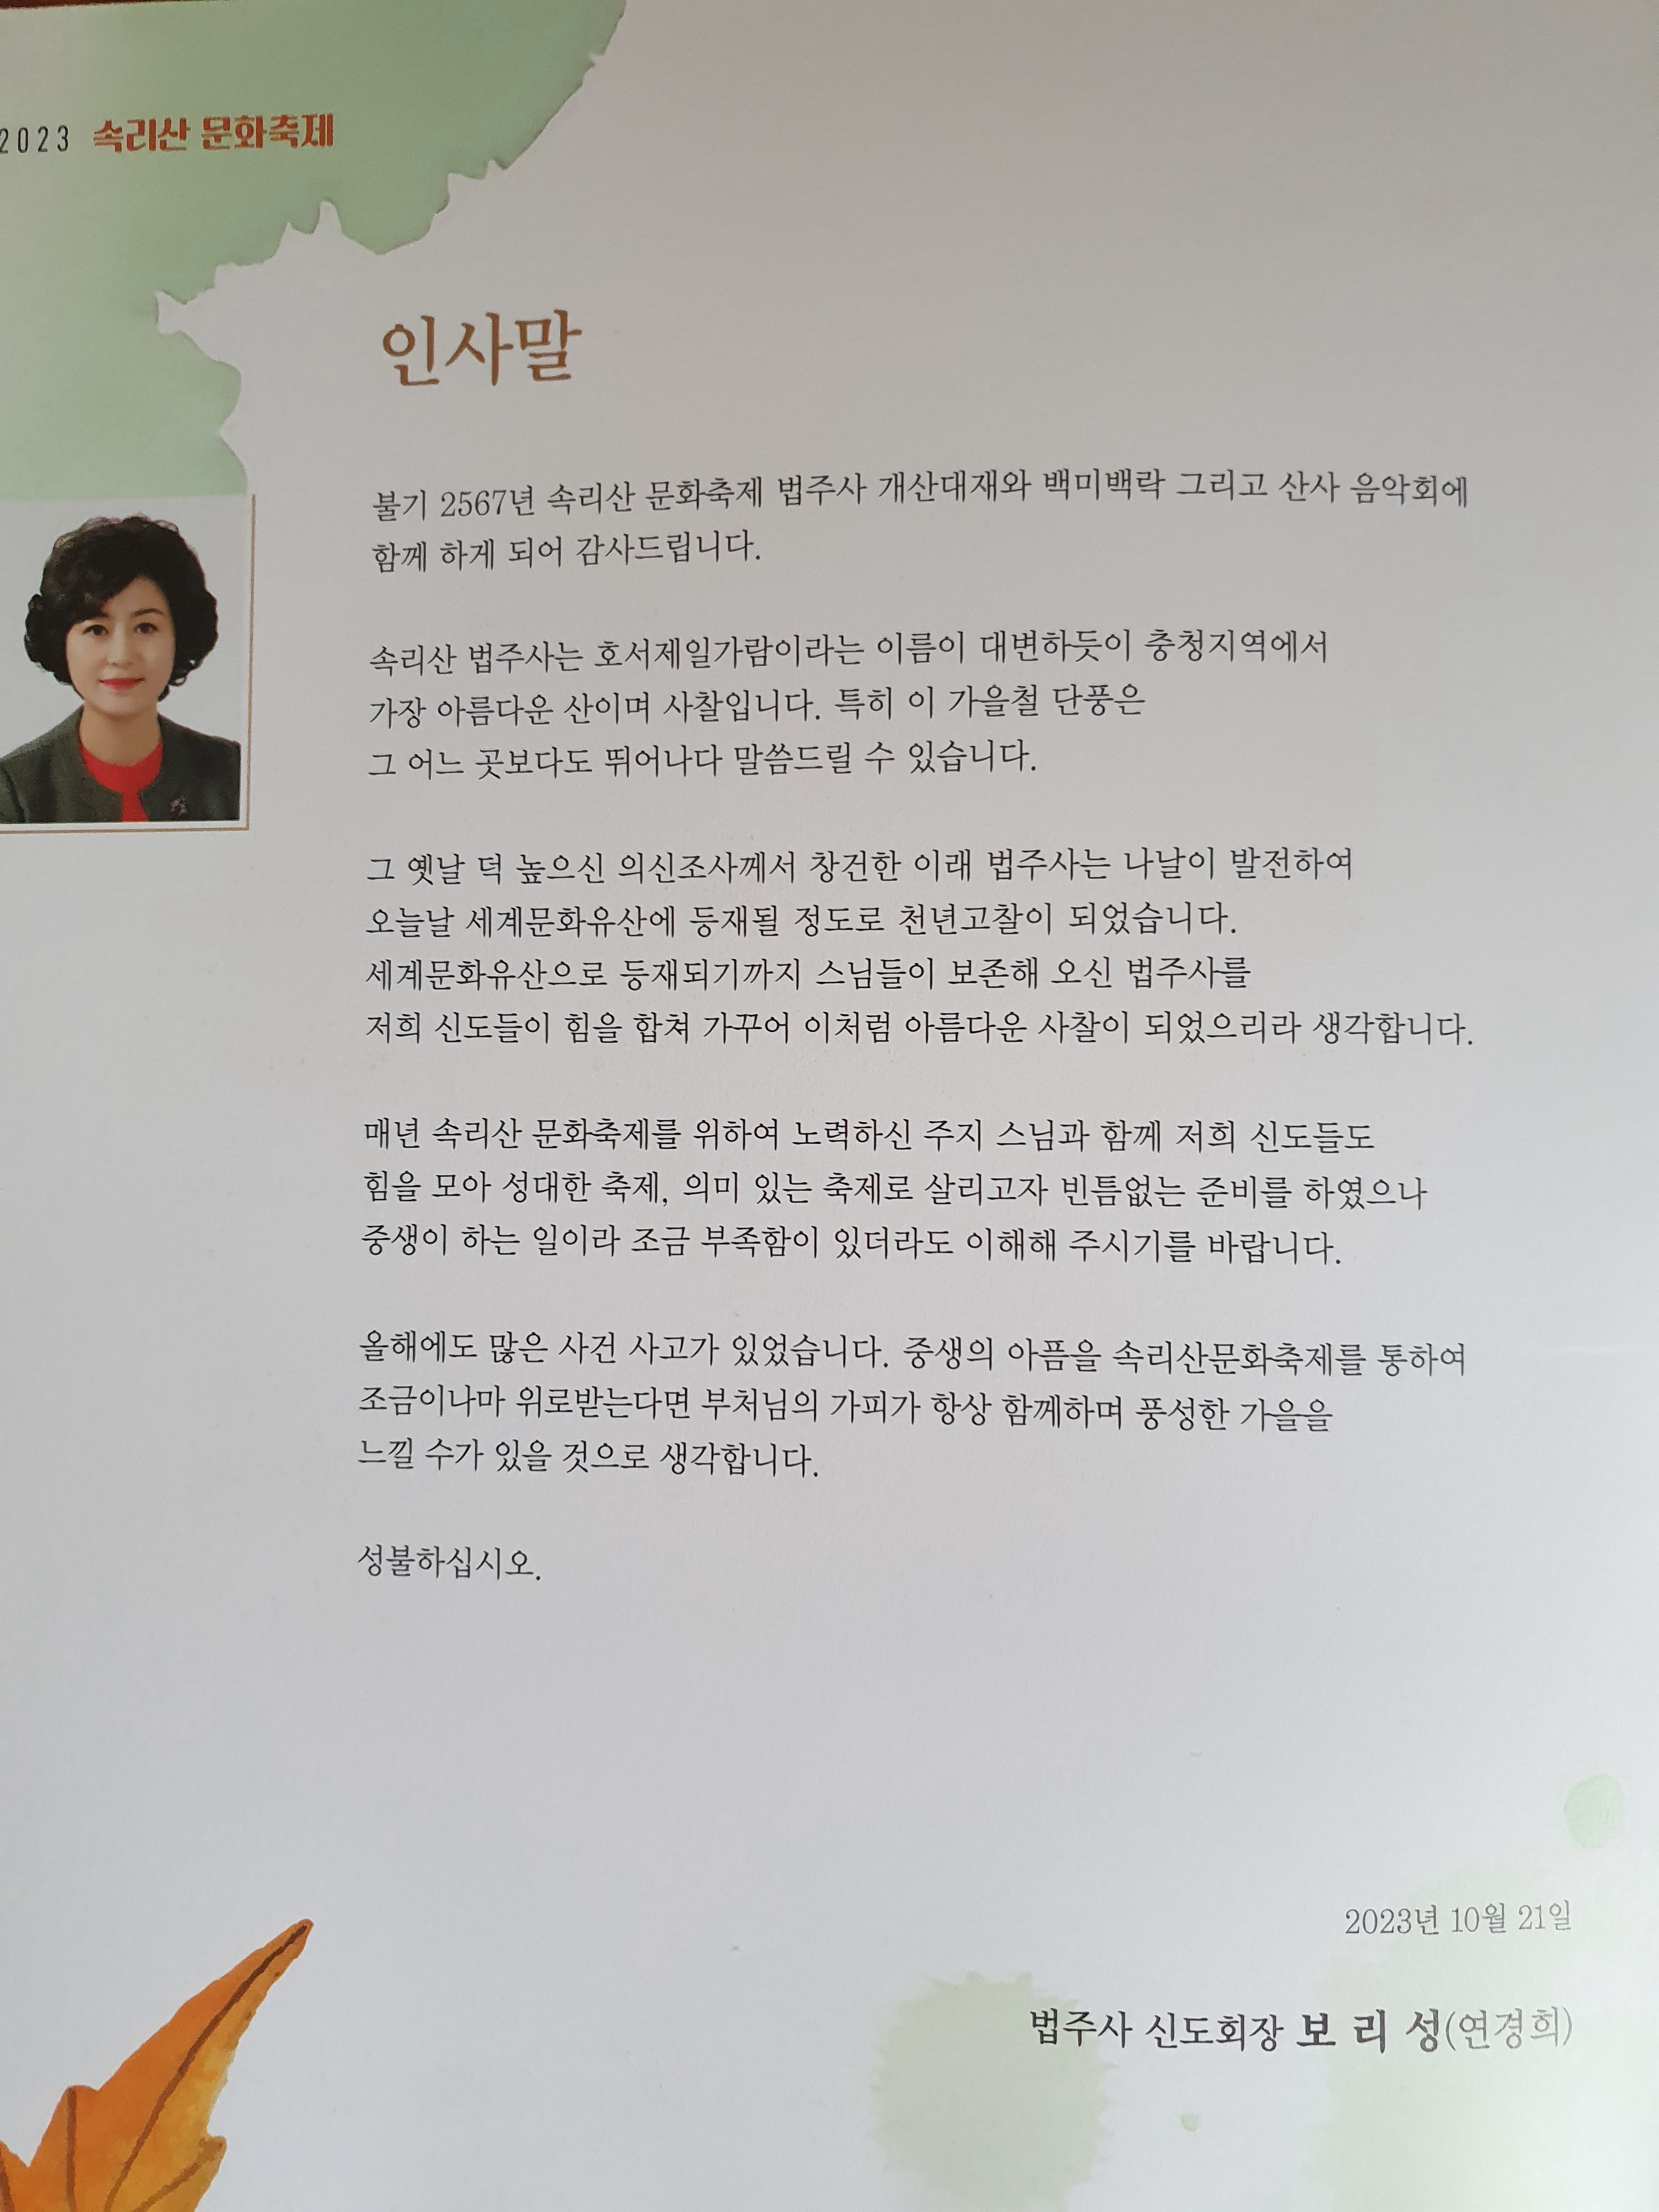 2023 속리산 문화축제
인사말
불기 2567년 속리산 문화축제 법주사 개산대재와 백미백락 그리고 산사 음악회에
함께 하게 되어 감사드립니다.
속리산 법주사는 호서제일가람이라는 이름이 대변하듯이 충청지역에서
가장 아름다운 산이며 사찰입니다. 특히 이 가을철 단풍은
그 어느 곳보다도 뛰어나다 말씀드릴 수 있습니다.
그 옛날 덕 높으신 의신조사께서 창건한 이래 법주사는 나날이 발전하여
오늘날 세계문화유산에 등재될 정도로 천년고찰이 되었습니다.
세계문화유산으로 등재되기까지 스님들이 보존해 오신 법주사를
저희 신도들이 힘을 합쳐 가꾸어 이처럼 아름다운 사찰이 되었으리라 생각합니다.
매년 속리산 문화축제를 위하여 노력하신 주지 스님과 함께 저희 신도들도
힘을 모아 성대한 축제, 의미 있는 축제로 살리고자 빈틈없는 준비를 하였으나
중생이 하는 일이라 조금 부족함이 있더라도 이해해 주시기를 바랍니다.
올해에도 많은 사건 사고가 있었습니다. 중생의 아픔을 속리산문화축제를 통하여
조금이나마 위로받는다면 부처님의 가피가 항상 함께하며 풍성한 가을을
느낄 수가 있을 것으로 생각합니다.
성불하십시오.
2023년 10월 21일
법주사 신도회장 보 리 성(연경희)